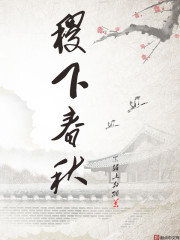 稷下春秋